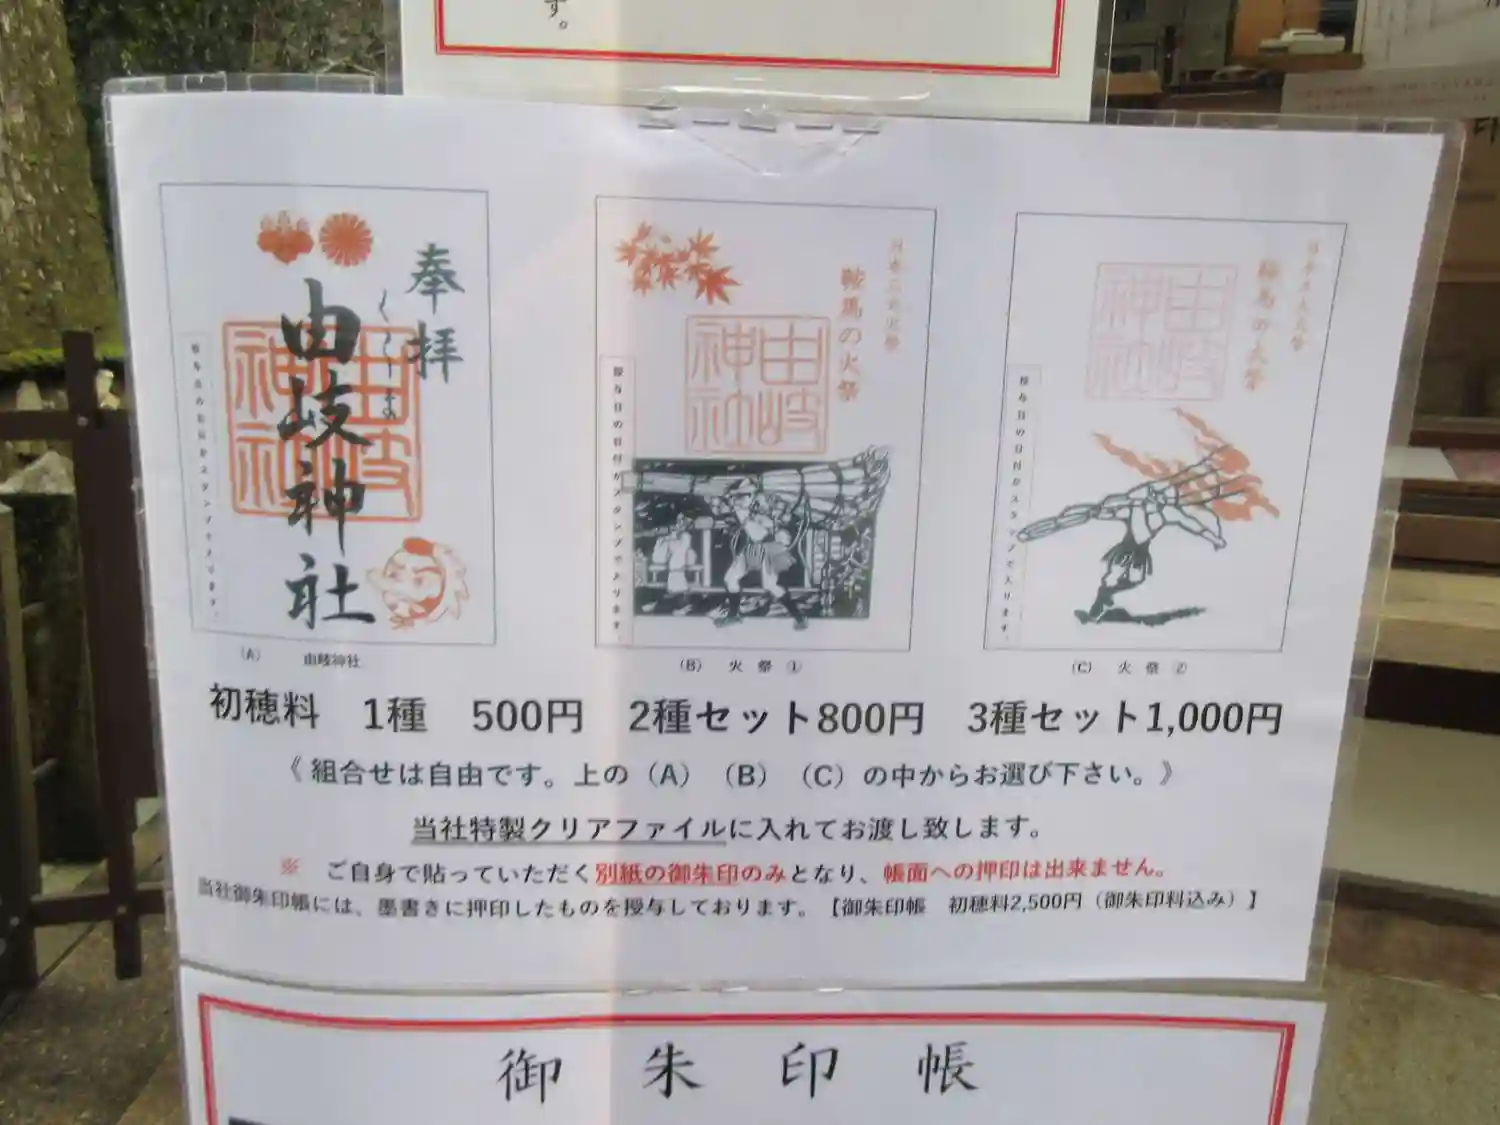 す。
奉拝
くらま
由岐神社
由岐神社
授与日の日付がスタンプで入ります。
(A) 由岐神社
鞍馬の火祭
由岐神社
授与日の日付がスタンプで入ります。
(B) 火祭①
鞍馬の火祭
由岐神社
授与日の日付がスタンプで入ります。
(C) 火祭②
初穂料 1種 500円 2種セット800円 3種セット1,000円
《組合せは自由です。上の（A）（B）（C）の中からお選び下さい。》
当社特製クリアファイルに入れてお渡し致します。
※ ご自身で貼っていただく別紙の御朱印のみとなり、帳面への押印は出来ません。
当社御朱印帳には、墨書きに押印したものを授与しております。【御朱印帳 初穂料2,500円（御朱印料込み）】
御朱印帳
印